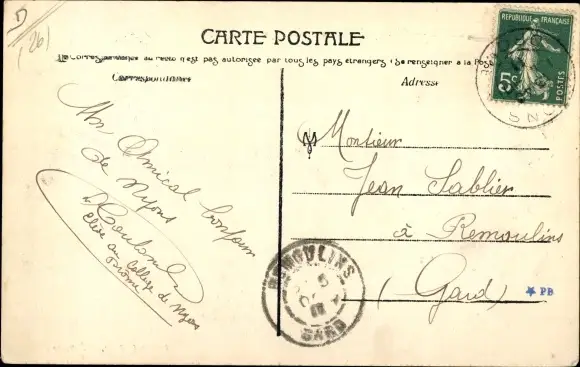 (26)
CARTE POSTALE
La Correspondance au recto n'est pas autorisée par tous les pays étrangers (Se renseigner à la Poste
Correspondance
Adresse
REPUBLIQUE FRANÇAISE
5c
POSTES
NYONS
Un Amical bonjour
de Nyons
Coulomb
Elève au Collège de Nyons
Drôme
Monsieur
Jean Sablier
à Remoulins
(Gard)
REMOULINS
GARD
PB